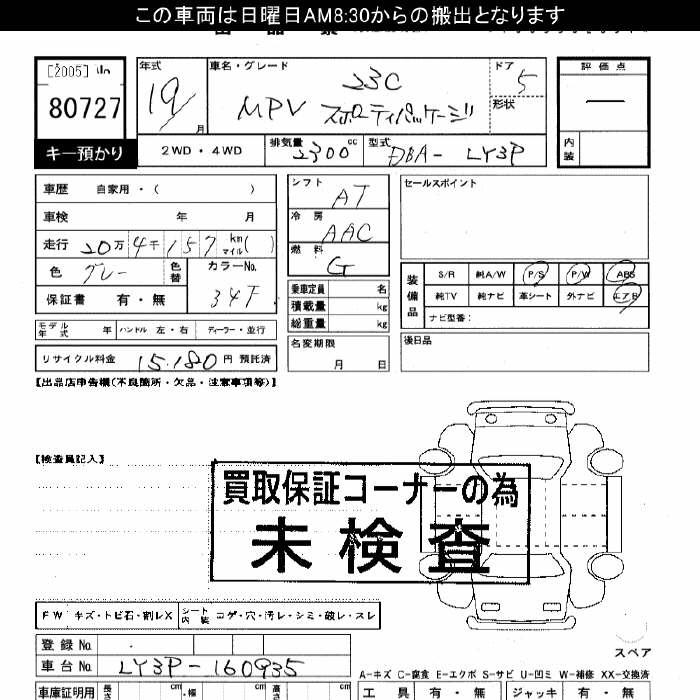 この車両は日曜日AM8:30からの搬出となります
[2005]
80727
キー預かり
年式 19 月
車名・グレード 23C
MPV スポーティパッケージ
ドア 5
形状
評価点
—
内装
2WD・4WD
排気量 2300 cc
型式 DBA- LY3P
車歴 自家用・( )
車検 年 月
走行 20万4千157 km マイル( )
色 グレー
色替
カラーNo. 34F
保証書 有・無
モデル年式 年
ハンドル 左・右
ディーラー・並行
リサイクル料金 15.180 円 預託済
シフト AT
冷房 AAC
燃料 G
乗車定員 名
積載量 kg
総重量 kg
名変期限
月 日
セールスポイント
装備品
S/R 純A/W P/S P/W ABS
純TV 純ナビ 革シート 外ナビ エアB
ナビ型番:
後日品
【出品店申告欄(不良箇所・欠品・注意事項等)】
【検査員記入】
買取保証コーナーの為
未検査
FW キズ・トビ石・割レX
シート内装 コゲ・穴・汚レ・シミ・破レ・スレ
スペア
登録No.
車台No. LY3P-160935
A-キズ C-腐食 E-エクボ S-サビ U-凹ミ W-補修 XX-交換済
車庫証明用 長さ cm ・幅 cm 高さ cm
工具 有・無 ジャッキ 有・無